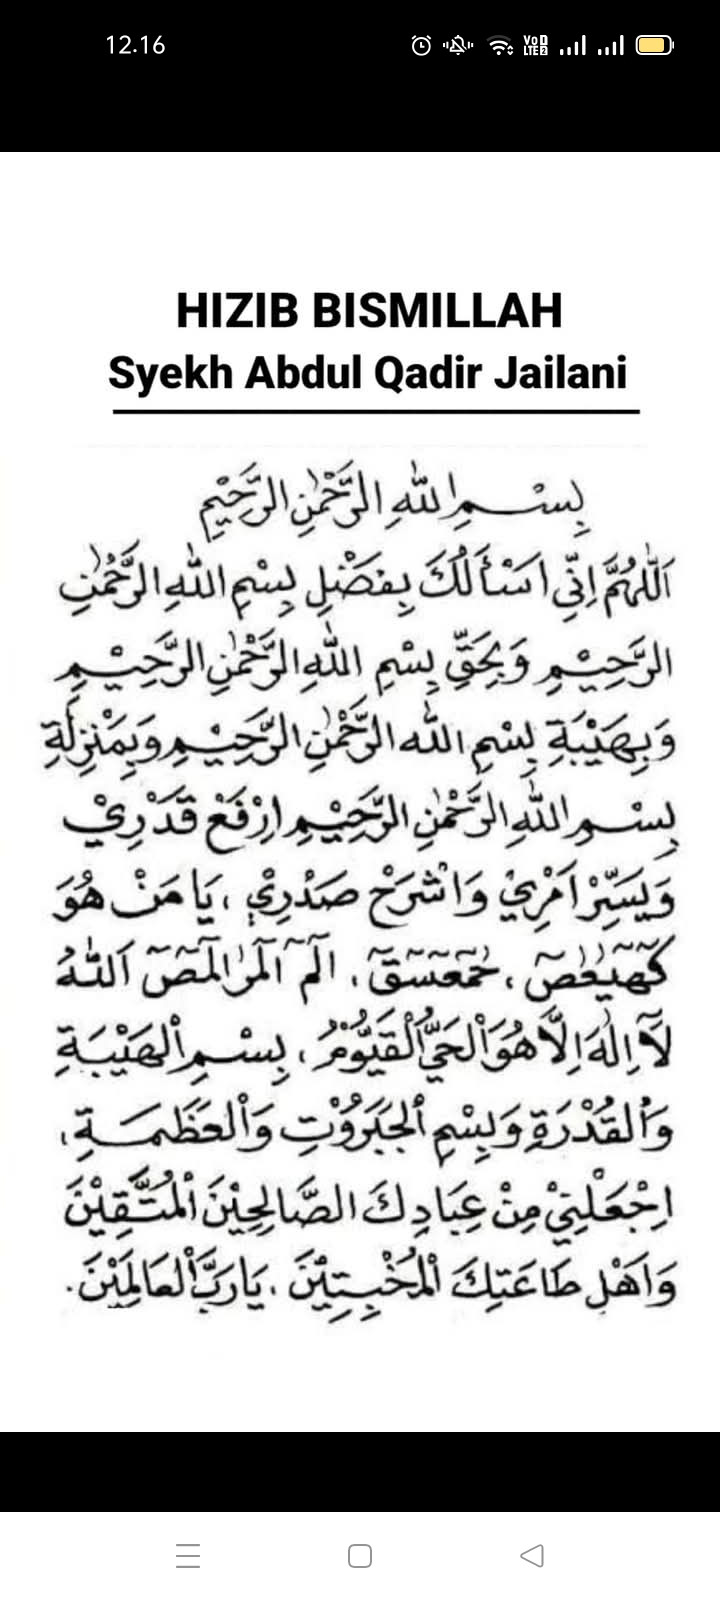 12.16
VoD LTE2
HIZIB BISMILLAH
Syekh Abdul Qadir Jailani
بِسْمِ اللهِ الرَّحْمٰنِ الرَّحِيْمِ
اَللّٰهُمَّ اِنِّيْ اَسْأَلُكَ بِفَضْلِ بِسْمِ اللهِ الرَّحْمٰنِ
الرَّحِيْمِ وَبِحَقِّ بِسْمِ اللهِ الرَّحْمٰنِ الرَّحِيْمِ
وَبِهَيْبَةِ بِسْمِ اللهِ الرَّحْمٰنِ الرَّحِيْمِ وَبِمَنْزِلَةِ
بِسْمِ اللهِ الرَّحْمٰنِ الرَّحِيْمِ اِرْفَعْ قَدْرِيْ
وَيَسِّرْ اَمْرِيْ وَاشْرَحْ صَدْرِيْ، يَا مَنْ هُوَ
كٓهٰيٰعٓصٓ، حٰمٓعٓسٓقٓ، الٓمٓ الٓمٓرٰ الٓمٓصٓ اَللّٰهُ
لَآ اِلٰهَ اِلَّا هُوَ الْحَيُّ الْقَيُّوْمُ، بِسْمِ الْهَيْبَةِ
وَالْقُدْرَةِ وَبِسْمِ الْجَبَرُوْتِ وَالْعَظَمَةِ،
اِجْعَلْنِيْ مِنْ عِبَادِكَ الصَّالِحِيْنَ الْمُتَّقِيْنَ
وَاَهْلِ طَاعَتِكَ الْمُخْبِتِيْنَ، يَا رَبَّ الْعَالَمِيْنَ.